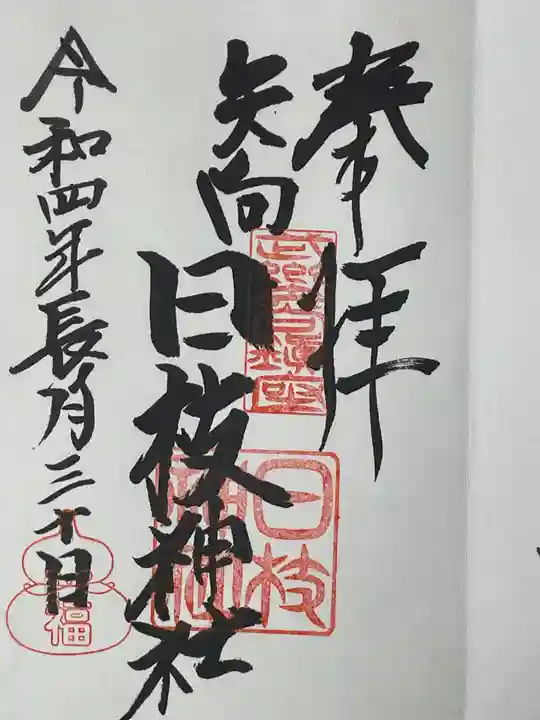 奉拝
矢向
日枝神社
令和四年長月三十日
日枝神社
福